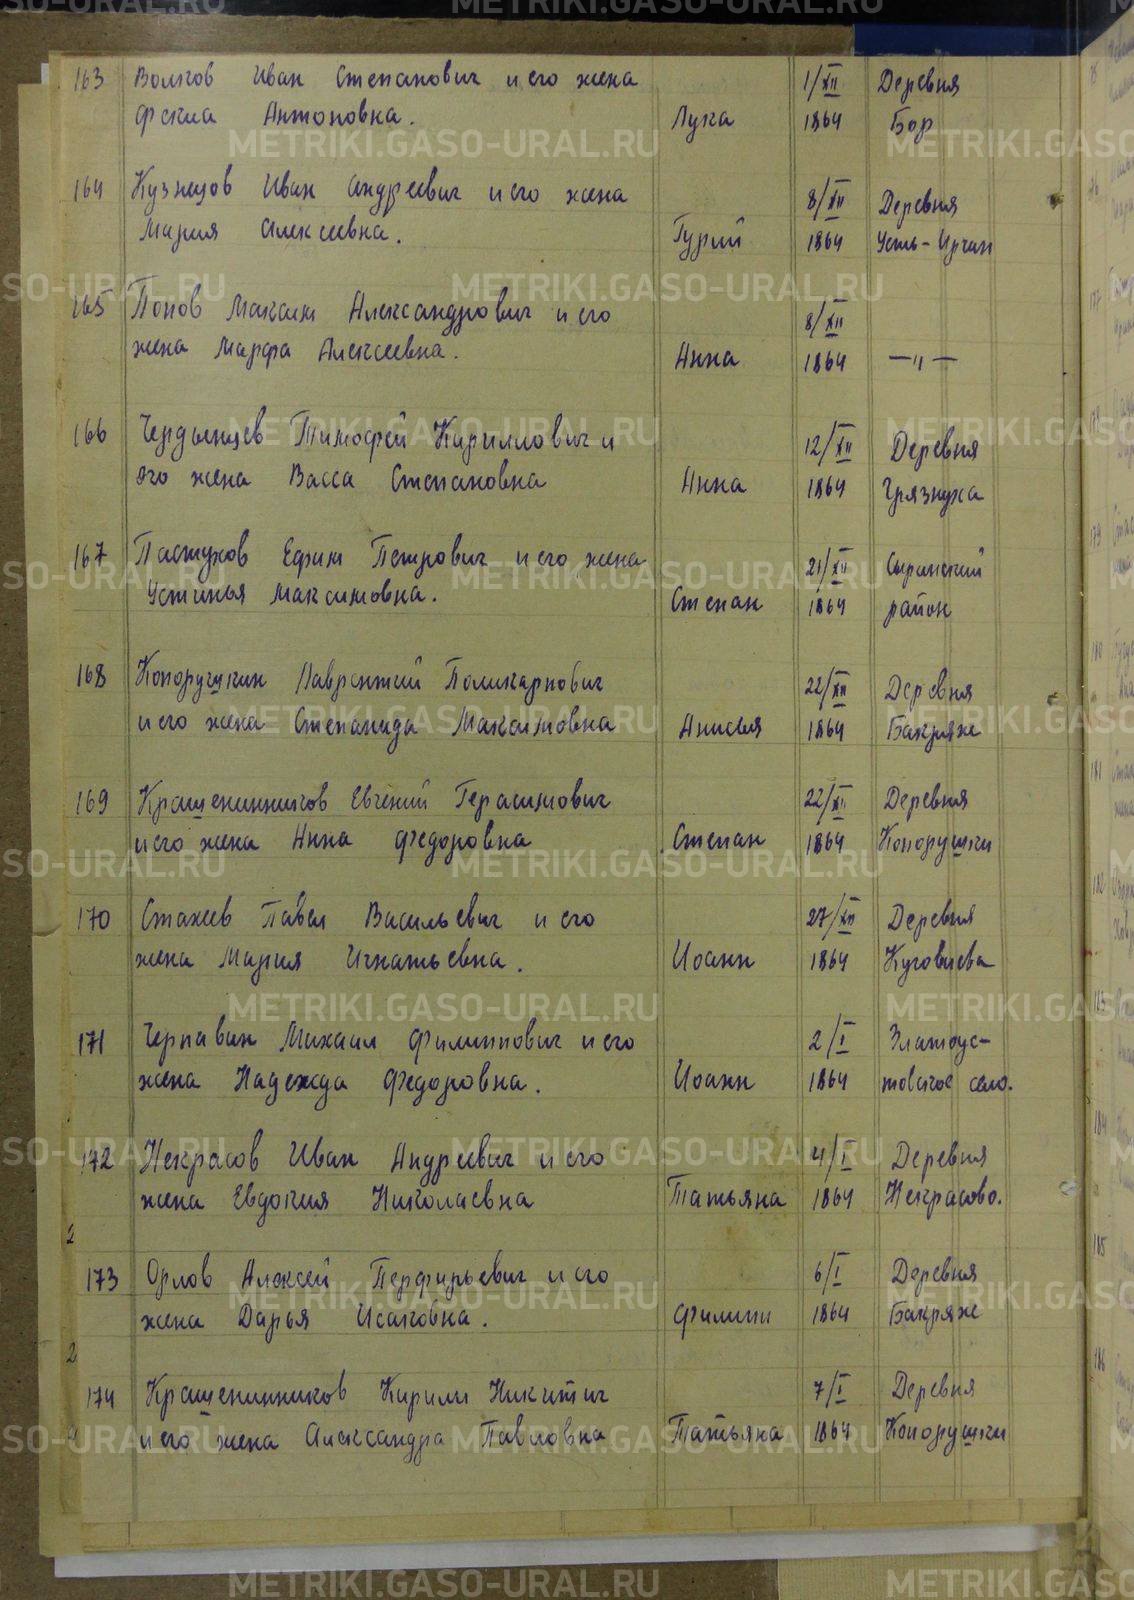 163 Волков Иван Степанович и его жена 1/XII Деревня
Фекла Антоновна. Лука 1864 Бор
164 Кузнецов Иван Андреевич и его жена 8/XII Деревня
Мария Алексеевна. Гурий 1864 Усть-Иргин
165 Попов Максим Александрович и его 8/XII
жена Марфа Алексеевна. Анна 1864 —"—
166 Чердынцев Тимофей Кириллович и 12/XII Деревня
его жена Васса Степановна Анна 1864 Грязнуха
167 Пастухов Ефим Петрович и его жена 21/XII Сыринский
Устинья Максимовна. Степан 1864 район
168 Копорушкин Лаврентий Поликарпович 22/XII Деревня
и его жена Степанида Максимовна Анисья 1864 Бакряже
169 Крашенинников Евгений Герасимович 22/XII Деревня
и его жена Анна Федоровна Степан 1864 Копорушки
170 Стахеев Павел Васильевич и его 27/XII Деревня
жена Мария Игнатьевна. Иоанн 1864
171 Черпавин Михаил Филиппович и его 2/I Златоус-
жена Надежда Федоровна. Иоанн 1864 товское село.
172 Некрасов Иван Андреевич и его 4/I Деревня
жена Евдокия Николаевна Татьяна 1864 Некрасово.
173 Орлов Алексей Перфирьевич и его 6/I Деревня
жена Дарья Исаковна. Филипп 1864 Бакряже
174 Крашенинников Кирилл Никитич 7/I Деревня
и его жена Александра Павловна Татьяна 1864 Копорушки
METRIKI.GASO-URAL.RU